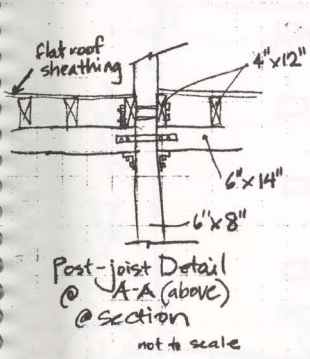 flat roof
sheathing
4"x12"
6"x14"
6"x8"
Post-joist Detail
@ A-A (above)
@ section
not to scale